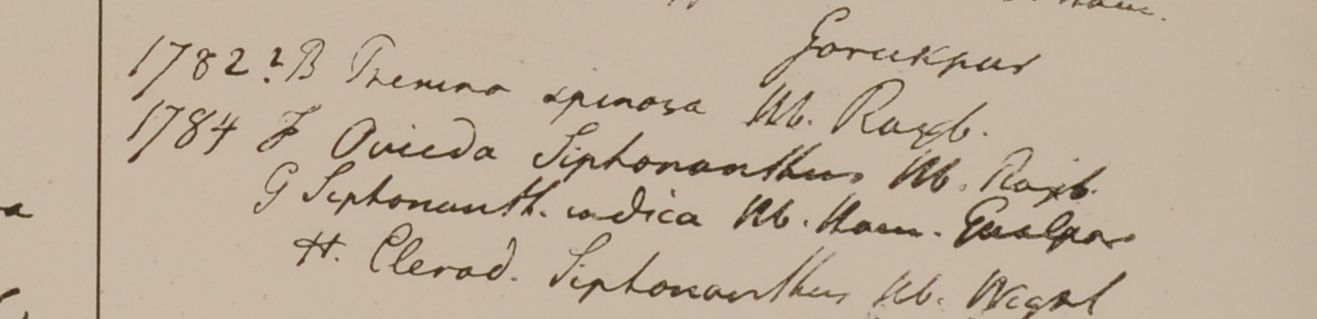 Ham.
Gorukpur
1782 ? B Premna spinosa Hb. Roxb.
1784 F Ovieda Siphonanthus Hb. Roxb.
G Siphonanth. indica Hb. Ham. Gualpar
H. Clerod. Siphonanthus Hb. Wight